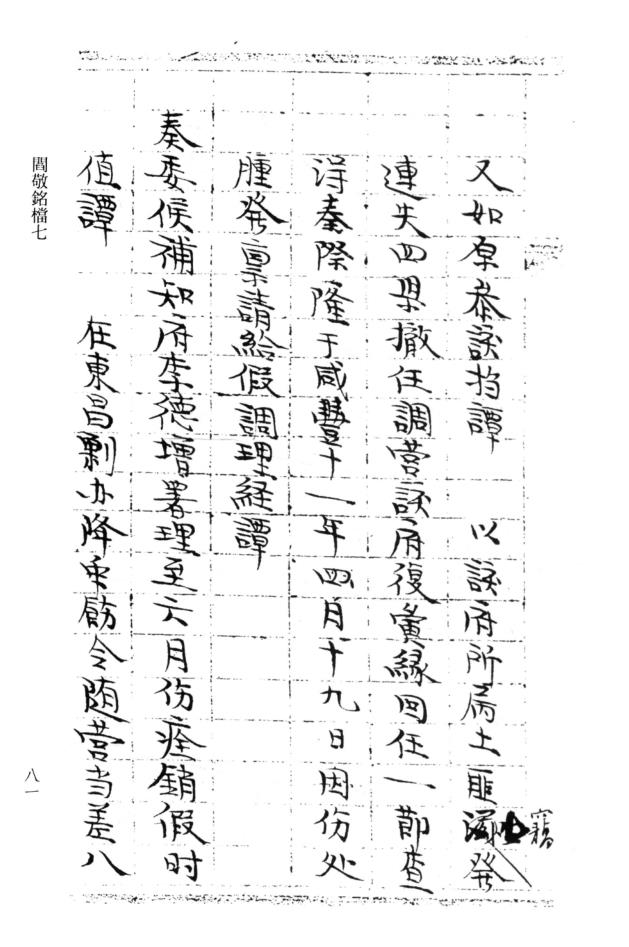 又如原叅該撫譚 以該府所屬土匪竊發
連失四県撤任調营該府復夤緣回任一節查
淂秦際隆于咸豐十一年四月十九日因伤处
腫発禀請給假調理経譚
奏委候補知府李德增署理至六月伤痊銷假时
值譚 在東昌剿办降众飭令随营当差八
閻敬銘檔七
八一